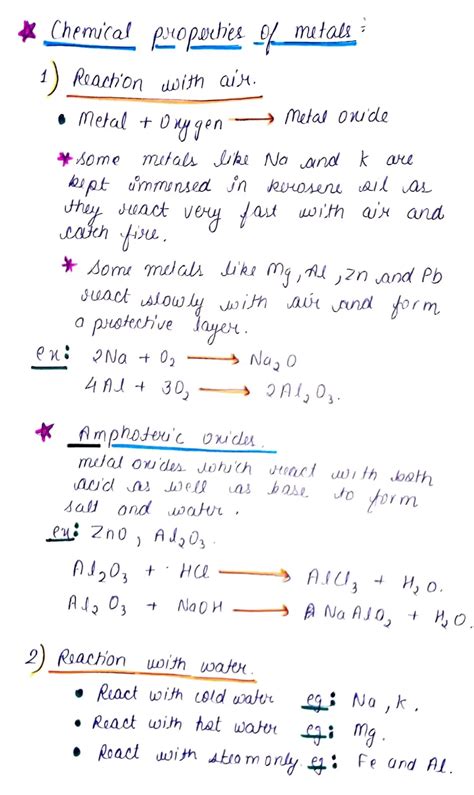 * Chemical properties of metals:
1) Reaction with air.
• Metal + Oxygen → Metal oxide
* Some metals like Na and K are
kept immensed in kerosene oil as
they react very fast with air and
catch fire.
* Some metals like Mg, Al, Zn and Pb
react slowly with air and form
a protective layer.
ex: 2Na + O₂ → Na₂O
4Al + 3O₂ → 2Al₂O₃.
* Amphoteric oxides.
metal oxides which react with both
acid as well as base to form
salt and water.
ex: ZnO, Al₂O₃.
Al₂O₃ + HCl → AlCl₃ + H₂O.
Al₂O₃ + NaOH → NaAlO₂ + H₂O.
2) Reaction with water.
• React with cold water eg: Na, K.
• React with hot water eg: Mg.
• React with steam only eg: Fe and Al.